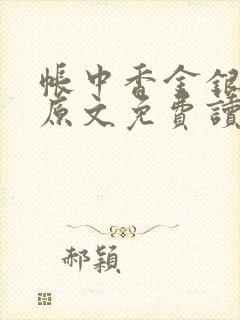 帳中香金銀
原文免費讀
郝穎